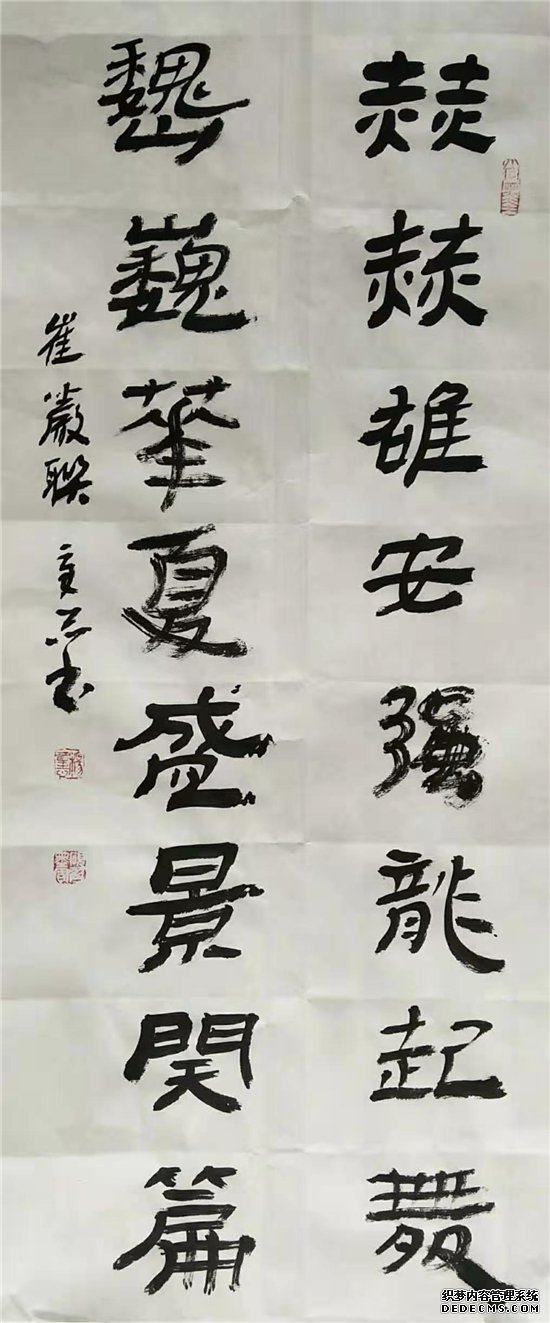 赫赫雄安強龍起舞
巍巍華夏盛景開篇
崔 聯 书
织梦内容管理系统
DEDECMS.COM